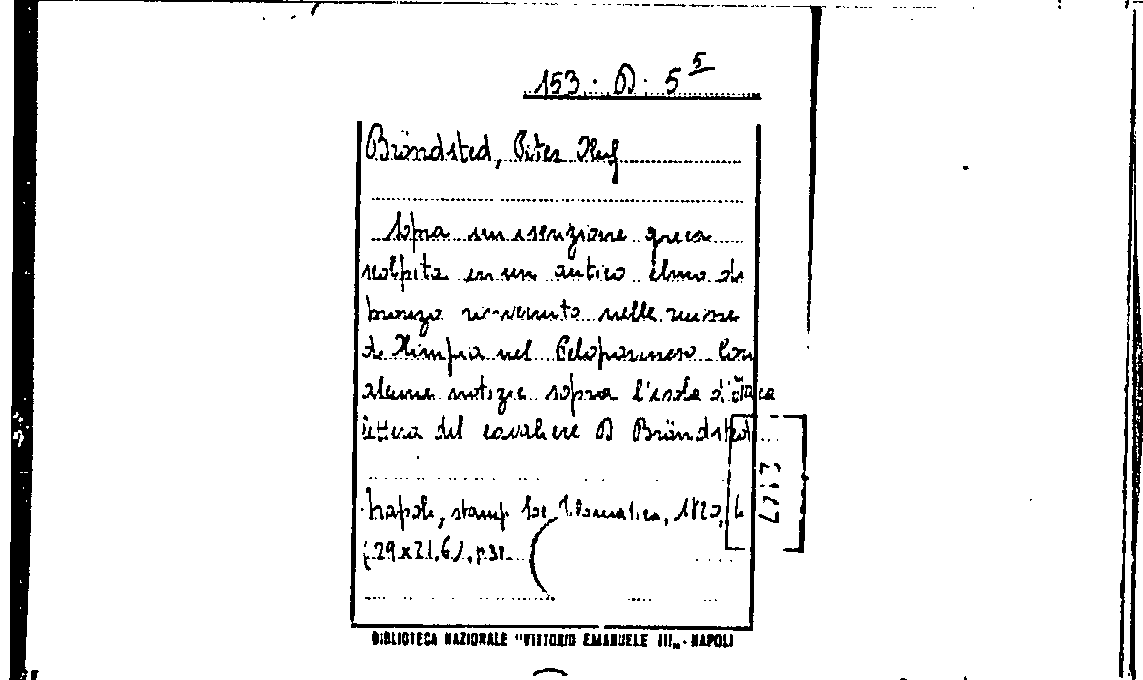 153. D. 5⁵
Bröndsted, Peter Oluf
Sopra un iscrizione greca
scolpita in un antico elmo di
bronzo rinvenuto nelle ruine
di Olimpia nel Peloponneso Con
alcune notizie sopra l'isola d'Itaca
lettera del cavaliere Bröndsted
Napoli, stamp. 1820, 4
(29x21,6), p.
BIBLIOTECA NAZIONALE "VITTORIO EMANUELE III„ - NAPOLI